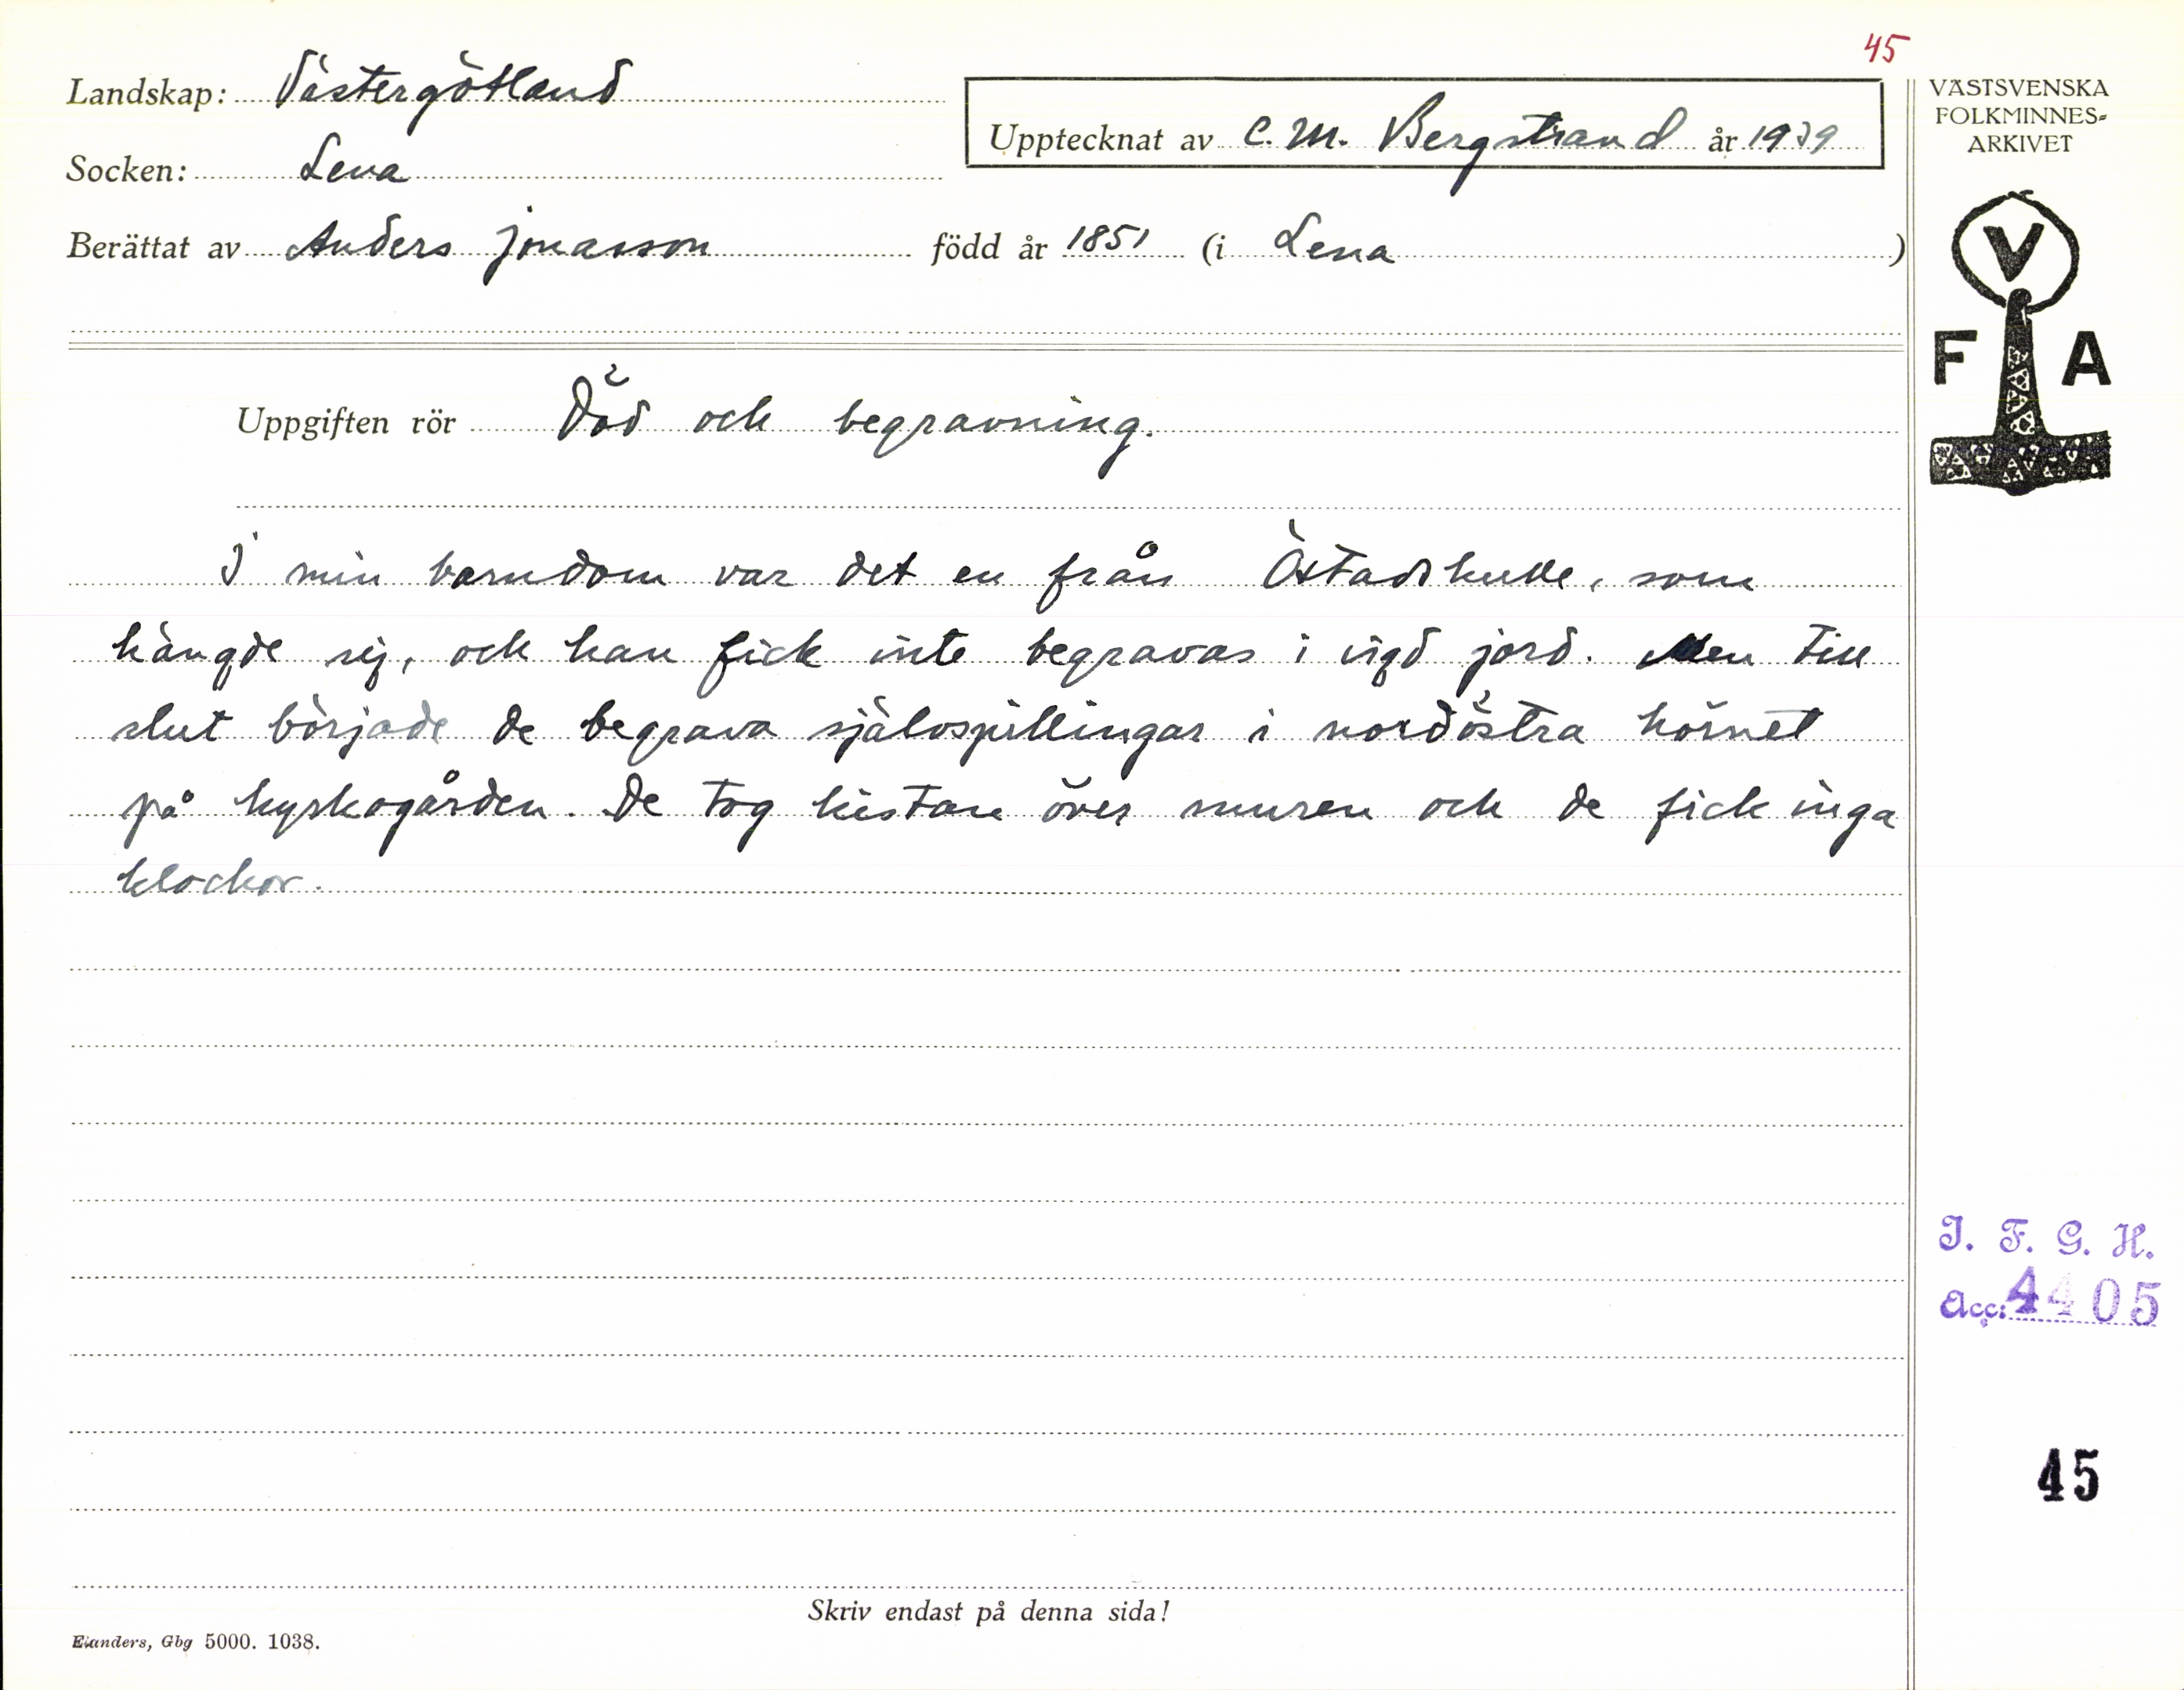 45
Landskap: Västergötland
Upptecknat av C. M. Bergstrand år 1939
Socken: Lena
Berättat av Anders Jonasson född år 1851 (i Lena )
VÄSTSVENSKA
FOLKMINNES-
ARKIVET
V
F A
Uppgiften rör Död och begravning.
I min barndom var det en från Östadskulle, som
hängde sig, och han fick inte begravas i vigd jord. Men till
slut började de begrava självspillingar i nordöstra hörnet
på kyrkogården. De tog kistan över muren och de fick inga
klockor.
I. F. G. H.
Acc: 4405
45
Skriv endast på denna sida!
Elanders, Gbg 5000. 1038.